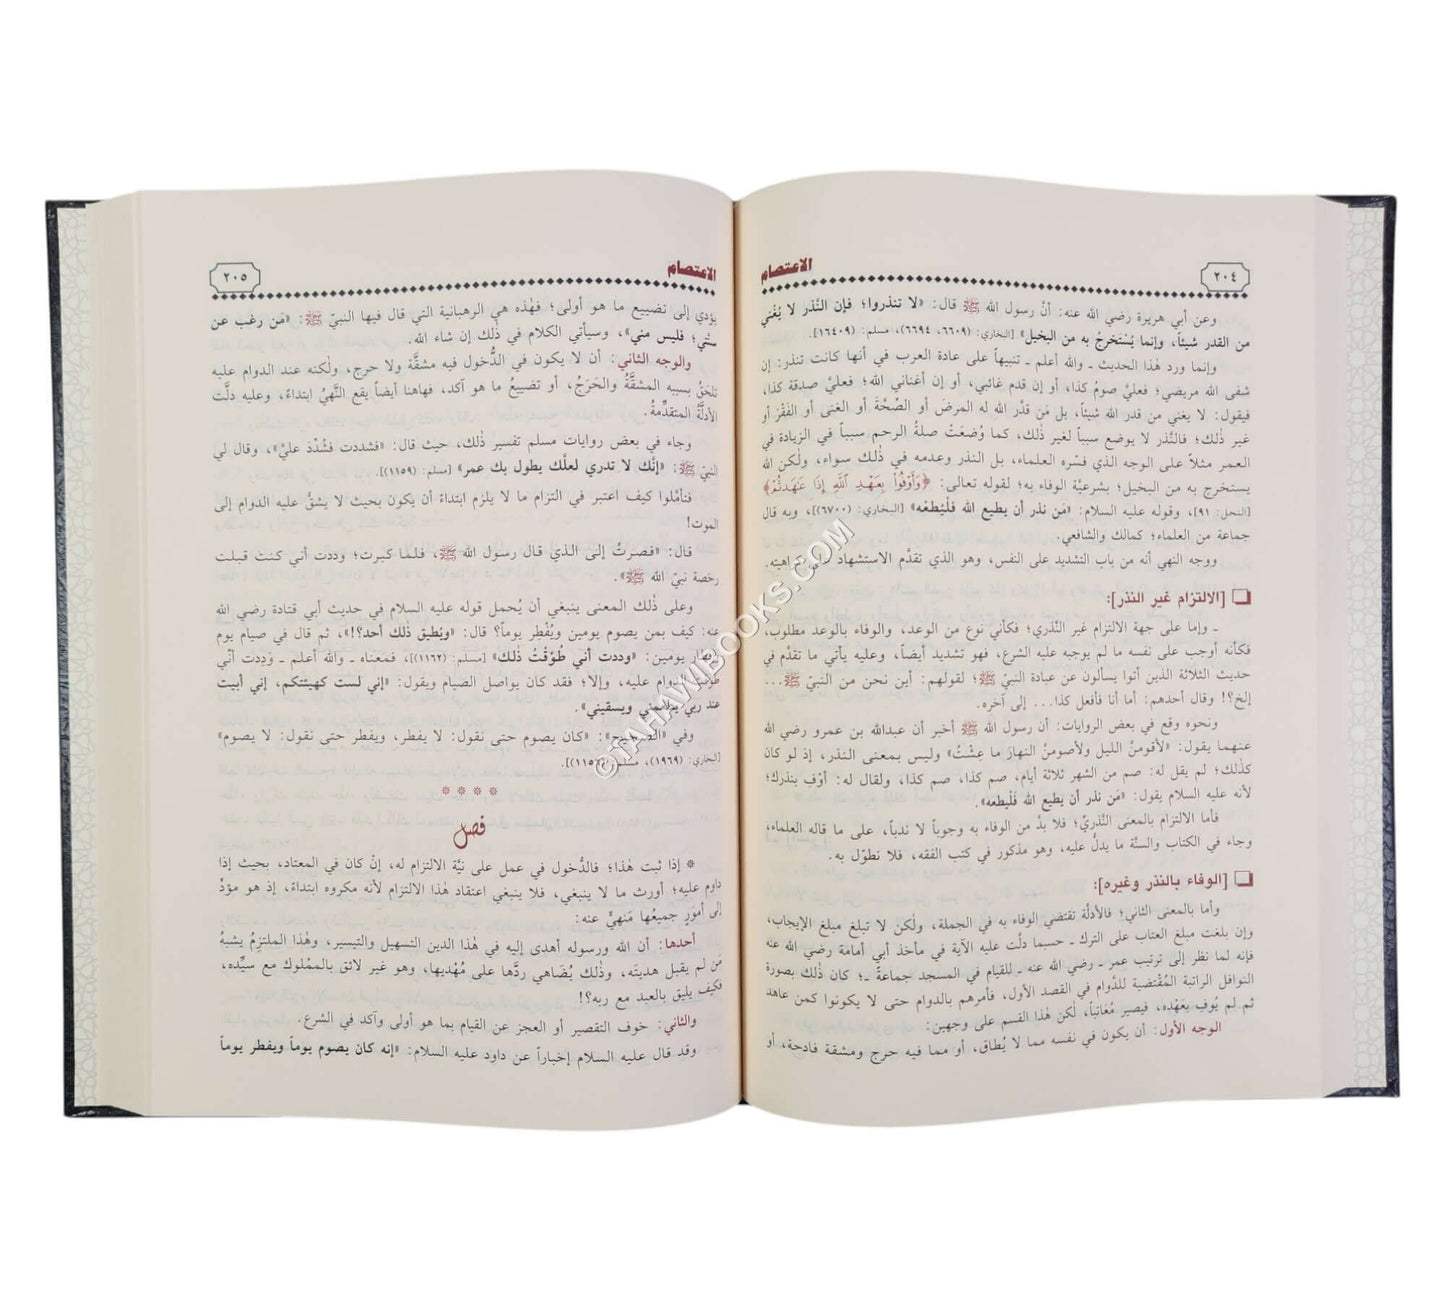 ٢٠٤
الاعتصام
وعن أبي هريرة رضي الله عنه: أنَّ رسول الله ﷺ قال: «لا تنذروا؛ فإن النَّذر لا يُغْني
من القدر شيئاً، وإنما يُسْتخرجُ به من البخيل» [البخاري: (٦٦٠٩، ٦٦٩٤)، مسلم: (١٦٤٠٩)].
وإنما ورد هٰذا الحديث ـ والله أعلم ـ تنبيهاً على عادة العرب في أنها كانت تنذر: إن
شفى الله مريضي؛ فعليَّ صومُ كذا، أو إن قدم غائبي، أو إن أغناني الله؛ فعليَّ صدقة كذا،
فيقول: لا يغني من قدر الله شيئاً، بل مَن قدَّر الله له المرضَ أو الصِّحَّةَ أو الغنى أو الفَقْرَ أو
غير ذٰلك؛ فالنَّذر لا يوضع سبباً لغير ذٰلك، كما وُضعَتْ صلةُ الرحم سبباً في الزيادة في
العمر مثلاً على الوجه الذي فسّره العلماء، بل النذر وعدمه في ذٰلك سواء، ولٰكن الله
يستخرج به من البخيل؛ بشرعيَّة الوفاء به؛ لقوله تعالى: ﴿وَأَوْفُواْ بِعَهْدِ ٱللَّهِ إِذَا عَٰهَدتُّمْ﴾
[النحل: ٩١]، وقوله عليه السلام: «مَن نذر أن يطيع الله فلْيُطعْه» [البخاري: (٦٧٠٠)]، وبه قال
جماعة من العلماء؛ كمالك والشافعي.
ووجه النهي أنه من باب التشديد على النفس، وهو الذي تقدَّم الاستشهاد على كراهيته.
❏ [الالتزام غير النذر]:
ـ وإما على جهة الالتزام غير النَّذري؛ فكأني نوع من الوعد، والوفاء بالوعد مطلوب،
فكأنه أوجب على نفسه ما لم يوجبه عليه الشرع، فهو تشديد أيضاً، وعليه يأتي ما تقدَّم في
حديث الثلاثة الذين أتوا يسألون عن عبادة النبيّ ﷺ؛ لقولهم: أين نحن من النبيّ ﷺ...
إلخ؟! وقال أحدهم: أما أنا فأفعل كذا... إلى آخره.
ونحوه وقع في بعض الروايات: أن رسول الله ﷺ أخبر أن عبدالله بن عمرو رضي الله
عنهما يقول: «لأقومنَّ الليل ولأصومنَّ النهارَ ما عشْتُ» وليس بمعنى النذر، إذ لو كان
كذلك؛ لم يقل له: صم من الشهر ثلاثة أيام، صم كذا، صم كذا، ولقال له: أوْفِ بنذرك؛
لأنه عليه السلام يقول: «مَن نذر أن يطيع الله فَلْيطعه».
فأما الالتزام بالمعنى النَّذريِّ؛ فلا بدَّ من الوفاء به وجوباً لا ندباً، على ما قاله العلماء،
وجاء في الكتاب والسنَّة ما يدلُّ عليه، وهو مذكور في كتب الفقه، فلا نطوّل به.
❏ [الوفاء بالنذر وغيره]:
وأما بالمعنى الثاني؛ فالأدلَّة تقتضي الوفاء به في الجملة، ولٰكنْ لا تبلغ مبلغ الإيجاب،
وإن بلغت مبلغ العتاب على الترك ـ حسبما دلَّت عليه الآية في مأخذ أبي أمامة رضي الله عنه
فإنه لما نظر إلى ترتيب عمر ـ رضي الله عنه ـ للقيام في المسجد جماعةً ـ؛ كان ذٰلك بصورة
النوافل الراتبة المُقْتضية للدَّوام في القصد الأول، فأمرهم بالدوام حتى لا يكونوا كمن عاهد
ثم لم يُوفِ بعَهْده، فيصير مُعَاتباً، لٰكن هٰذا القسم على وجهين:
الوجه الأول: أن يكون في نفسه مما لا يُطاق، أو مما فيه حرج ومشقة فادحة، أو
الاعتصام
٢٠٥
يؤدي إلى تضييع ما هو أولى؛ فهٰذه هي الرهبانية التي قال فيها النبيّ ﷺ: «مَن رغب عن
سنَّتي؛ فليس مني»، وسيأتي الكلام في ذٰلك إن شاء الله.
والوجه الثاني: أن لا يكون في الدُّخول فيه مشقَّة ولا حرج، ولٰكنه عند الدوام عليه
تلحَقُ بسببه المشقَّةُ والحَرَجُ، أو تضييعُ ما هو آكد، فهاهنا أيضاً يقع النَّهيُ ابتداءً، وعليه دلَّت
الأدلَّةُ المتقدِّمةُ.
وجاء في بعض روايات مسلم تفسير ذٰلك، حيث قال: «فشددت فشُدِّدَ عليَّ»، وقال لي
النبيّ ﷺ: «إنَّك لا تدري لعلَّك يطول بك عمر» [مسلم: (١١٥٩)].
فتأمَّلوا كيف اعتبر في التزام ما لا يلزم ابتداءً أن يكون بحيث لا يشقُّ عليه الدوام إلى
الموت!
قال: «فصرتُ إلى الذي قال رسول الله ﷺ، فلمَّا كبرت؛ وددت أني كنت قبلت
رخصة نبيّ الله ﷺ».
وعلى ذٰلك المعنى ينبغي أن يُحمل قوله عليه السلام في حديث أبي قتادة رضي الله
عنه: كيف بمن يصوم يومين ويُفْطر يوماً؟ قال: «ويُطيق ذٰلك أحد؟!»، ثم قال في صيام يوم
وإفطار يومين: «وددت أني طُوِّقْتُ ذٰلك» [مسلم: (١١٦٢)]، فمعناه ـ والله أعلم ـ وَدِدت أنّي
طوّقت الدوام عليه، وإلا؛ فقد كان يواصل الصّيام ويقول: «إني لست كهيئتكم، إني أبيت
عند ربي يطعمني ويسقيني».
وفي «الصحيح»: «كان يصوم حتى نقول: لا يفطر، ويفطر حتى نقول: لا يصوم»
[البخاري: (١٩٦٩)، مسلم: (١١٥٦)].
* * * *
فصل
* إذا ثبت هٰذا؛ فالدُّخول في عمل على نيَّة الالتزام له، إنْ كان في المعتاد، بحيث إذا
داوم عليه؛ أورث ما لا ينبغي، فلا ينبغي اعتقاد هٰذا الالتزام لأنه مكروه ابتداءً، إذ هو مؤدٍّ
إلى أمورٍ جميعُها مَنهيٌّ عنه:
أحدها: أن الله ورسوله أهدى إليه في هٰذا الدين التسهيل والتيسير، وهٰذا الملتزمُ يشبهُ
مَن لم يقبل هديتَه، وذٰلك يُضَاهي ردَّها على مُهْديها، وهو غير لائق بالممْلوك مع سيِّده،
فكيف يليق بالعبد مع ربه؟!
والثاني: خوف التقصير أو العجز عن القيام بما هو أولى وآكد في الشرع.
وقد قال عليه السلام إخباراً عن داود عليه السلام: «إنه كان يصوم يوماً ويفطر يوماً
©TAHAWIBOOKS.COM